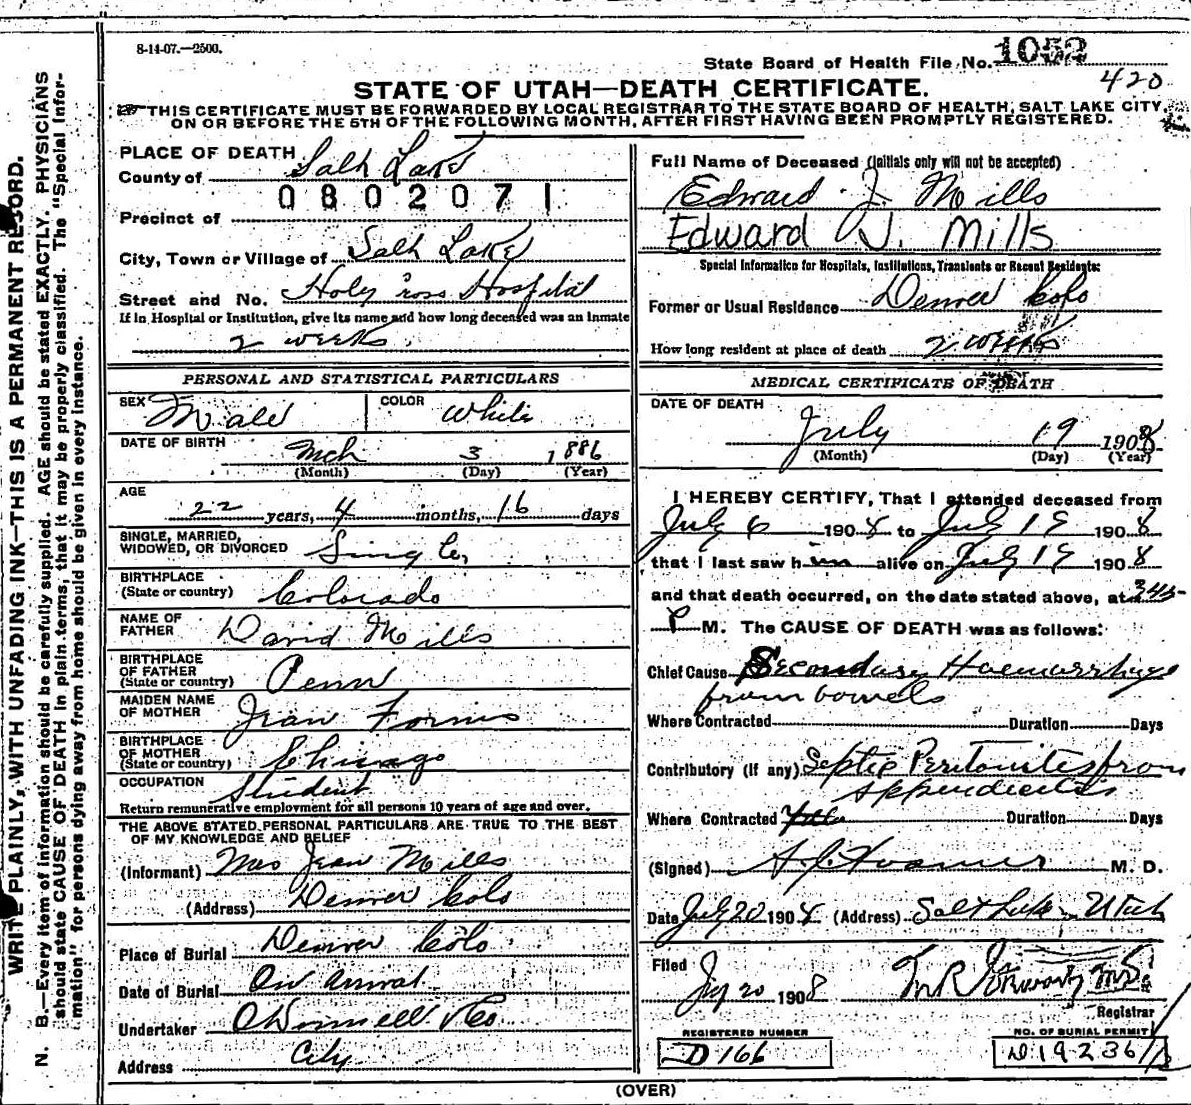 8-14-07.—2500.
State Board of Health File No. 1052
420
STATE OF UTAH—DEATH CERTIFICATE.
THIS CERTIFICATE MUST BE FORWARDED BY LOCAL REGISTRAR TO THE STATE BOARD OF HEALTH, SALT LAKE CITY,
ON OR BEFORE THE 5TH OF THE FOLLOWING MONTH, AFTER FIRST HAVING BEEN PROMPTLY REGISTERED.
WRITE PLAINLY, WITH UNFADING INK—THIS IS A PERMANENT RECORD.
N. B.—Every item of information should be carefully supplied. AGE should be stated EXACTLY. PHYSICIANS
should state CAUSE OF DEATH in plain terms, that it may be properly classified. The "Special Infor-
mation" for persons dying away from home should be given in every instance.
PLACE OF DEATH
County of Salt Lake
0802071
Precinct of
City, Town or Village of Salt Lake
Street and No. Holy Cross Hospital
If in Hospital or Institution, give its name and how long deceased was an inmate
2 weeks.
PERSONAL AND STATISTICAL PARTICULARS
SEX Male COLOR White
DATE OF BIRTH Mch 3 1886
(Month) (Day) (Year)
AGE 22 years, 4 months, 16 days
SINGLE, MARRIED,
WIDOWED, OR DIVORCED Single
BIRTHPLACE
(State or country) Colorado
NAME OF
FATHER David Mills
BIRTHPLACE
OF FATHER
(State or country) Penn
MAIDEN NAME
OF MOTHER Jean
BIRTHPLACE
OF MOTHER
(State or country) Chicago
OCCUPATION Student
Return remunerative employment for all persons 10 years of age and over.
THE ABOVE STATED PERSONAL PARTICULARS ARE TRUE TO THE BEST
OF MY KNOWLEDGE AND BELIEF
(Informant) Mrs Jean Mills
(Address) Denver Colo
Place of Burial Denver Colo
Date of Burial On arrival
Undertaker O'Donnell & Co
Address City
Full Name of Deceased (Initials only will not be accepted)
Edward J. Mills
Edward J. Mills
Special Information for Hospitals, Institutions, Transients or Recent Residents:
Former or Usual Residence Denver Colo
How long resident at place of death 2 weeks
MEDICAL CERTIFICATE OF DEATH
DATE OF DEATH
July 19 1908
(Month) (Day) (Year)
I HEREBY CERTIFY, That I attended deceased from
July 6 1908 to July 19 1908
that I last saw him alive on July 19 1908
and that death occurred, on the date stated above, at 345
P M. The CAUSE OF DEATH was as follows:
Chief Cause Secondary Haemorrhage
from bowels
Where Contracted Duration Days
Contributory (if any) Septic Peritonitis from
appendicitis
Where Contracted Duration Days
(Signed) M. D.
Date July 20 1908 (Address) Salt Lake Utah
Filed
July 20 1908
Registrar
REGISTERED NUMBER
D 166
NO. OF BURIAL PERMIT
D 19236
(OVER)